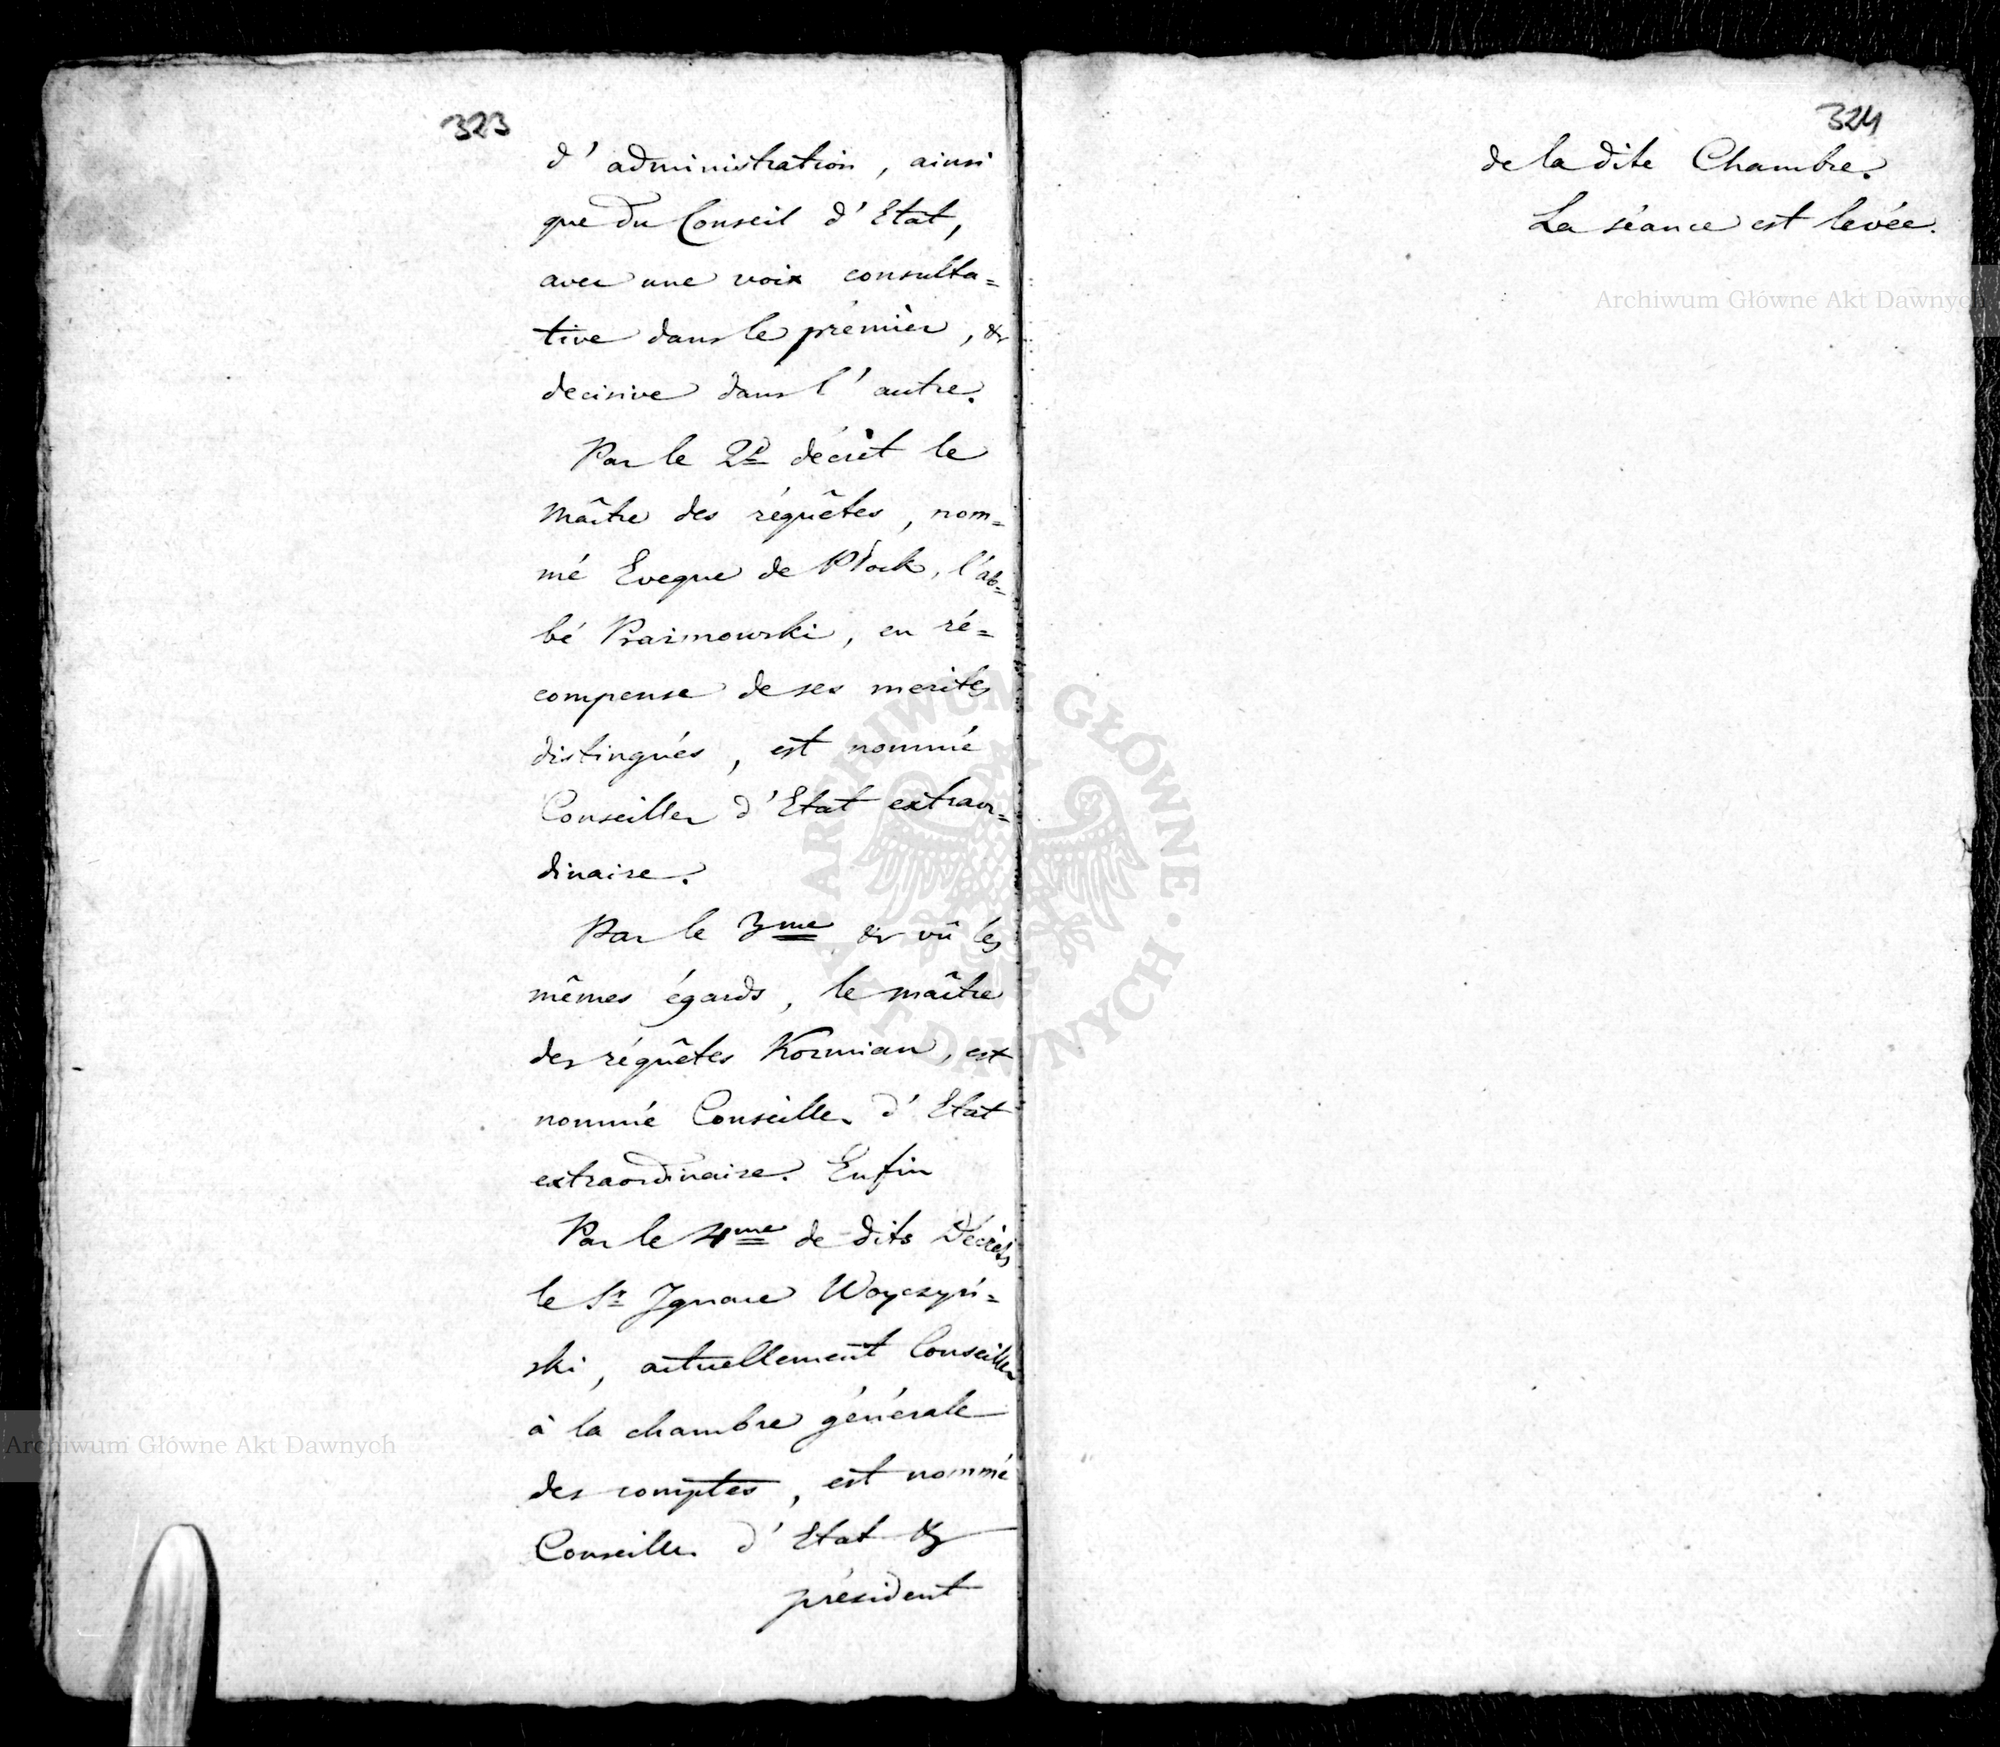 323
d' administration, ainsi
que du Conseil d' Etat,
avec une voix consulta=
tive dans le prémièr, &
decisive dans l' autre.
Par le 2d décrèt le
Maître des réquêtes, nom=
mé Eveque de Płock, l'ab=
bé Prazmowski, en ré=
compense de ses merites
distingués, est nommé
Conseiller d' Etat extraor=
dinaire.
Par le 3me & vû les
mêmes égards, le maître
des réquêtes Kozmian, est
nommé Conseiller d' Etat
extraordinaire. Enfin
Par le 4me de dits Décrèts
le Sr Ignace Woyczyń=
ski, actuellement Conseiller
à la chambre générale
des comptes, est nommé
Conseiller d' Etat &
président
324
de la dite Chambre.
La séance est levée.
Archiwum Główne Akt Dawnych
ARCHIWUM GŁÓWNE AKT DAWNYCH
Archiwum Główne Akt Dawnych